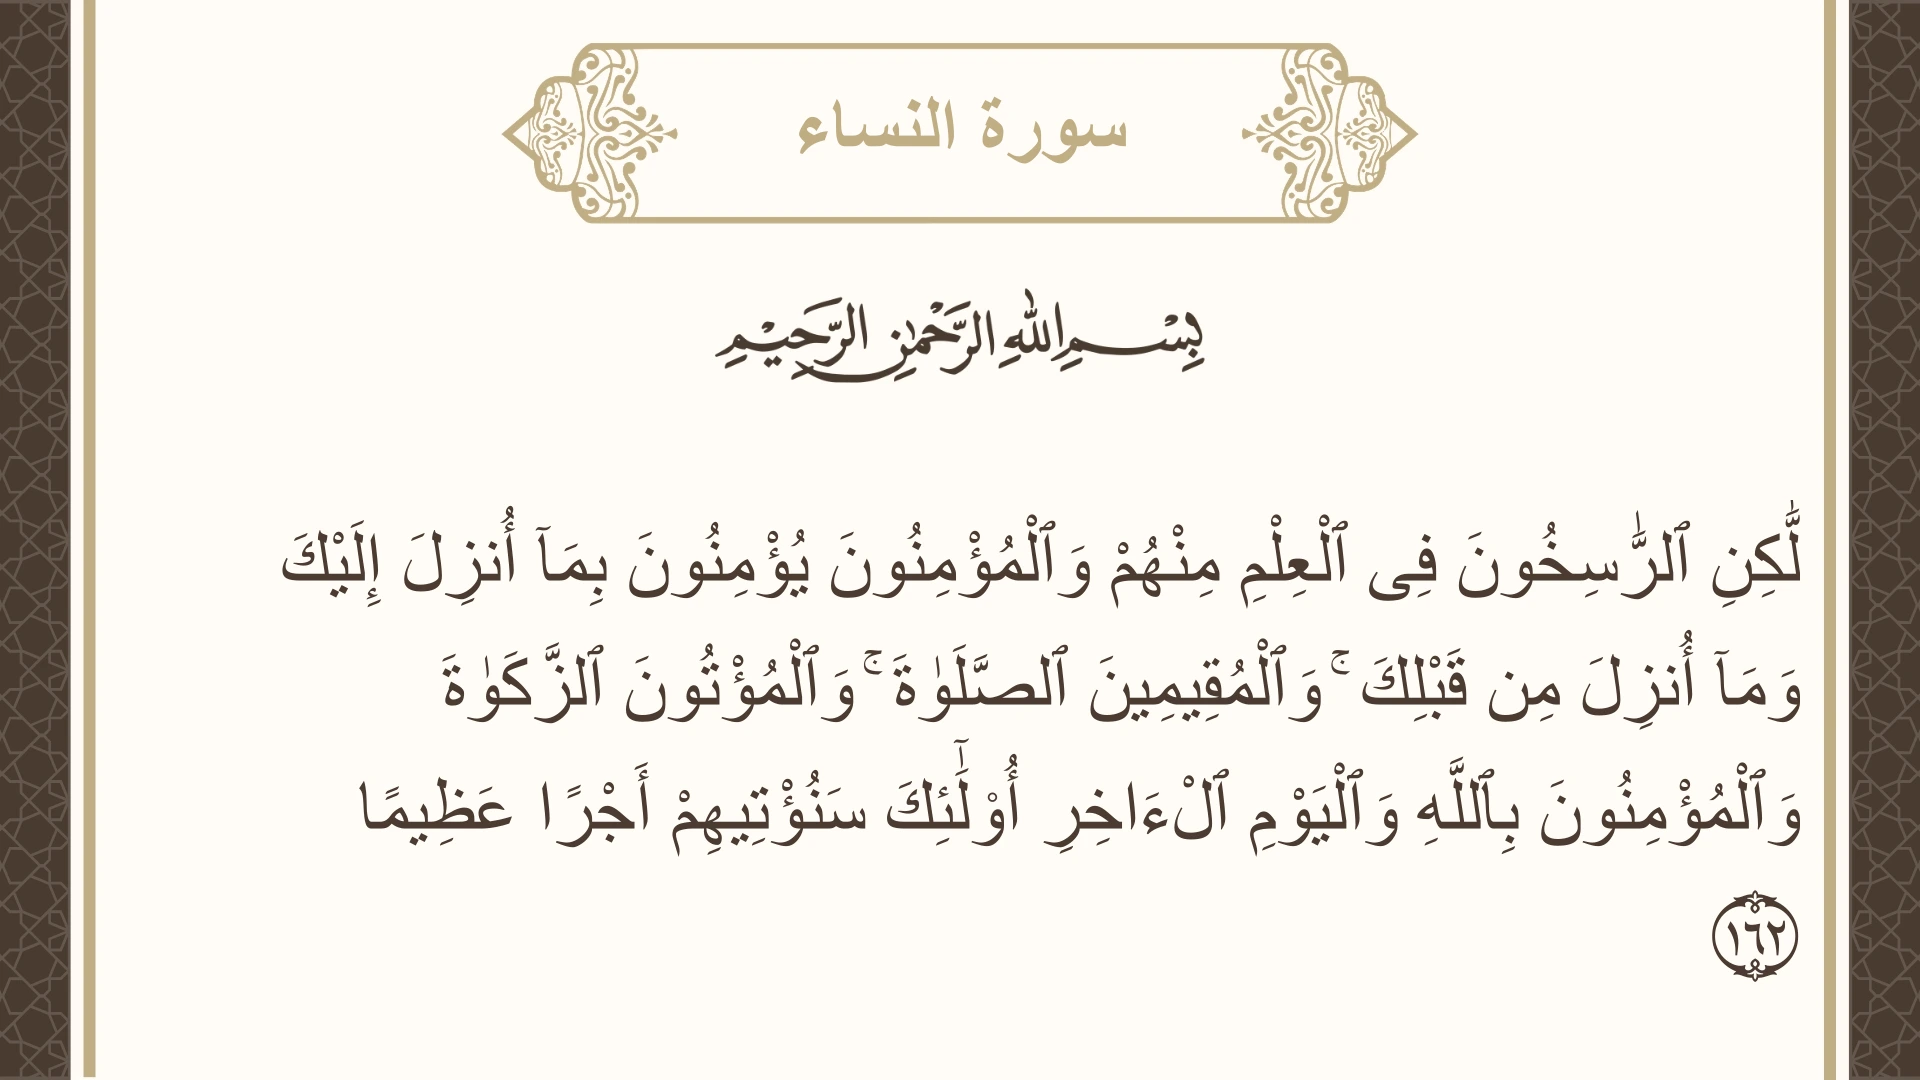 سورة النساء
بِسْمِ اللهِ الرَّحْمٰنِ الرَّحِيْمِ
لَّٰكِنِ ٱلرَّٰسِخُونَ فِى ٱلْعِلْمِ مِنْهُمْ وَٱلْمُؤْمِنُونَ يُؤْمِنُونَ بِمَآ أُنزِلَ إِلَيْكَ
وَمَآ أُنزِلَ مِن قَبْلِكَ ۚ وَٱلْمُقِيمِينَ ٱلصَّلَوٰةَ ۚ وَٱلْمُؤْتُونَ ٱلزَّكَوٰةَ
وَٱلْمُؤْمِنُونَ بِٱللَّهِ وَٱلْيَوْمِ ٱلْءَاخِرِ أُو۟لَٰٓئِكَ سَنُؤْتِيهِمْ أَجْرًا عَظِيمًا
١٦٢